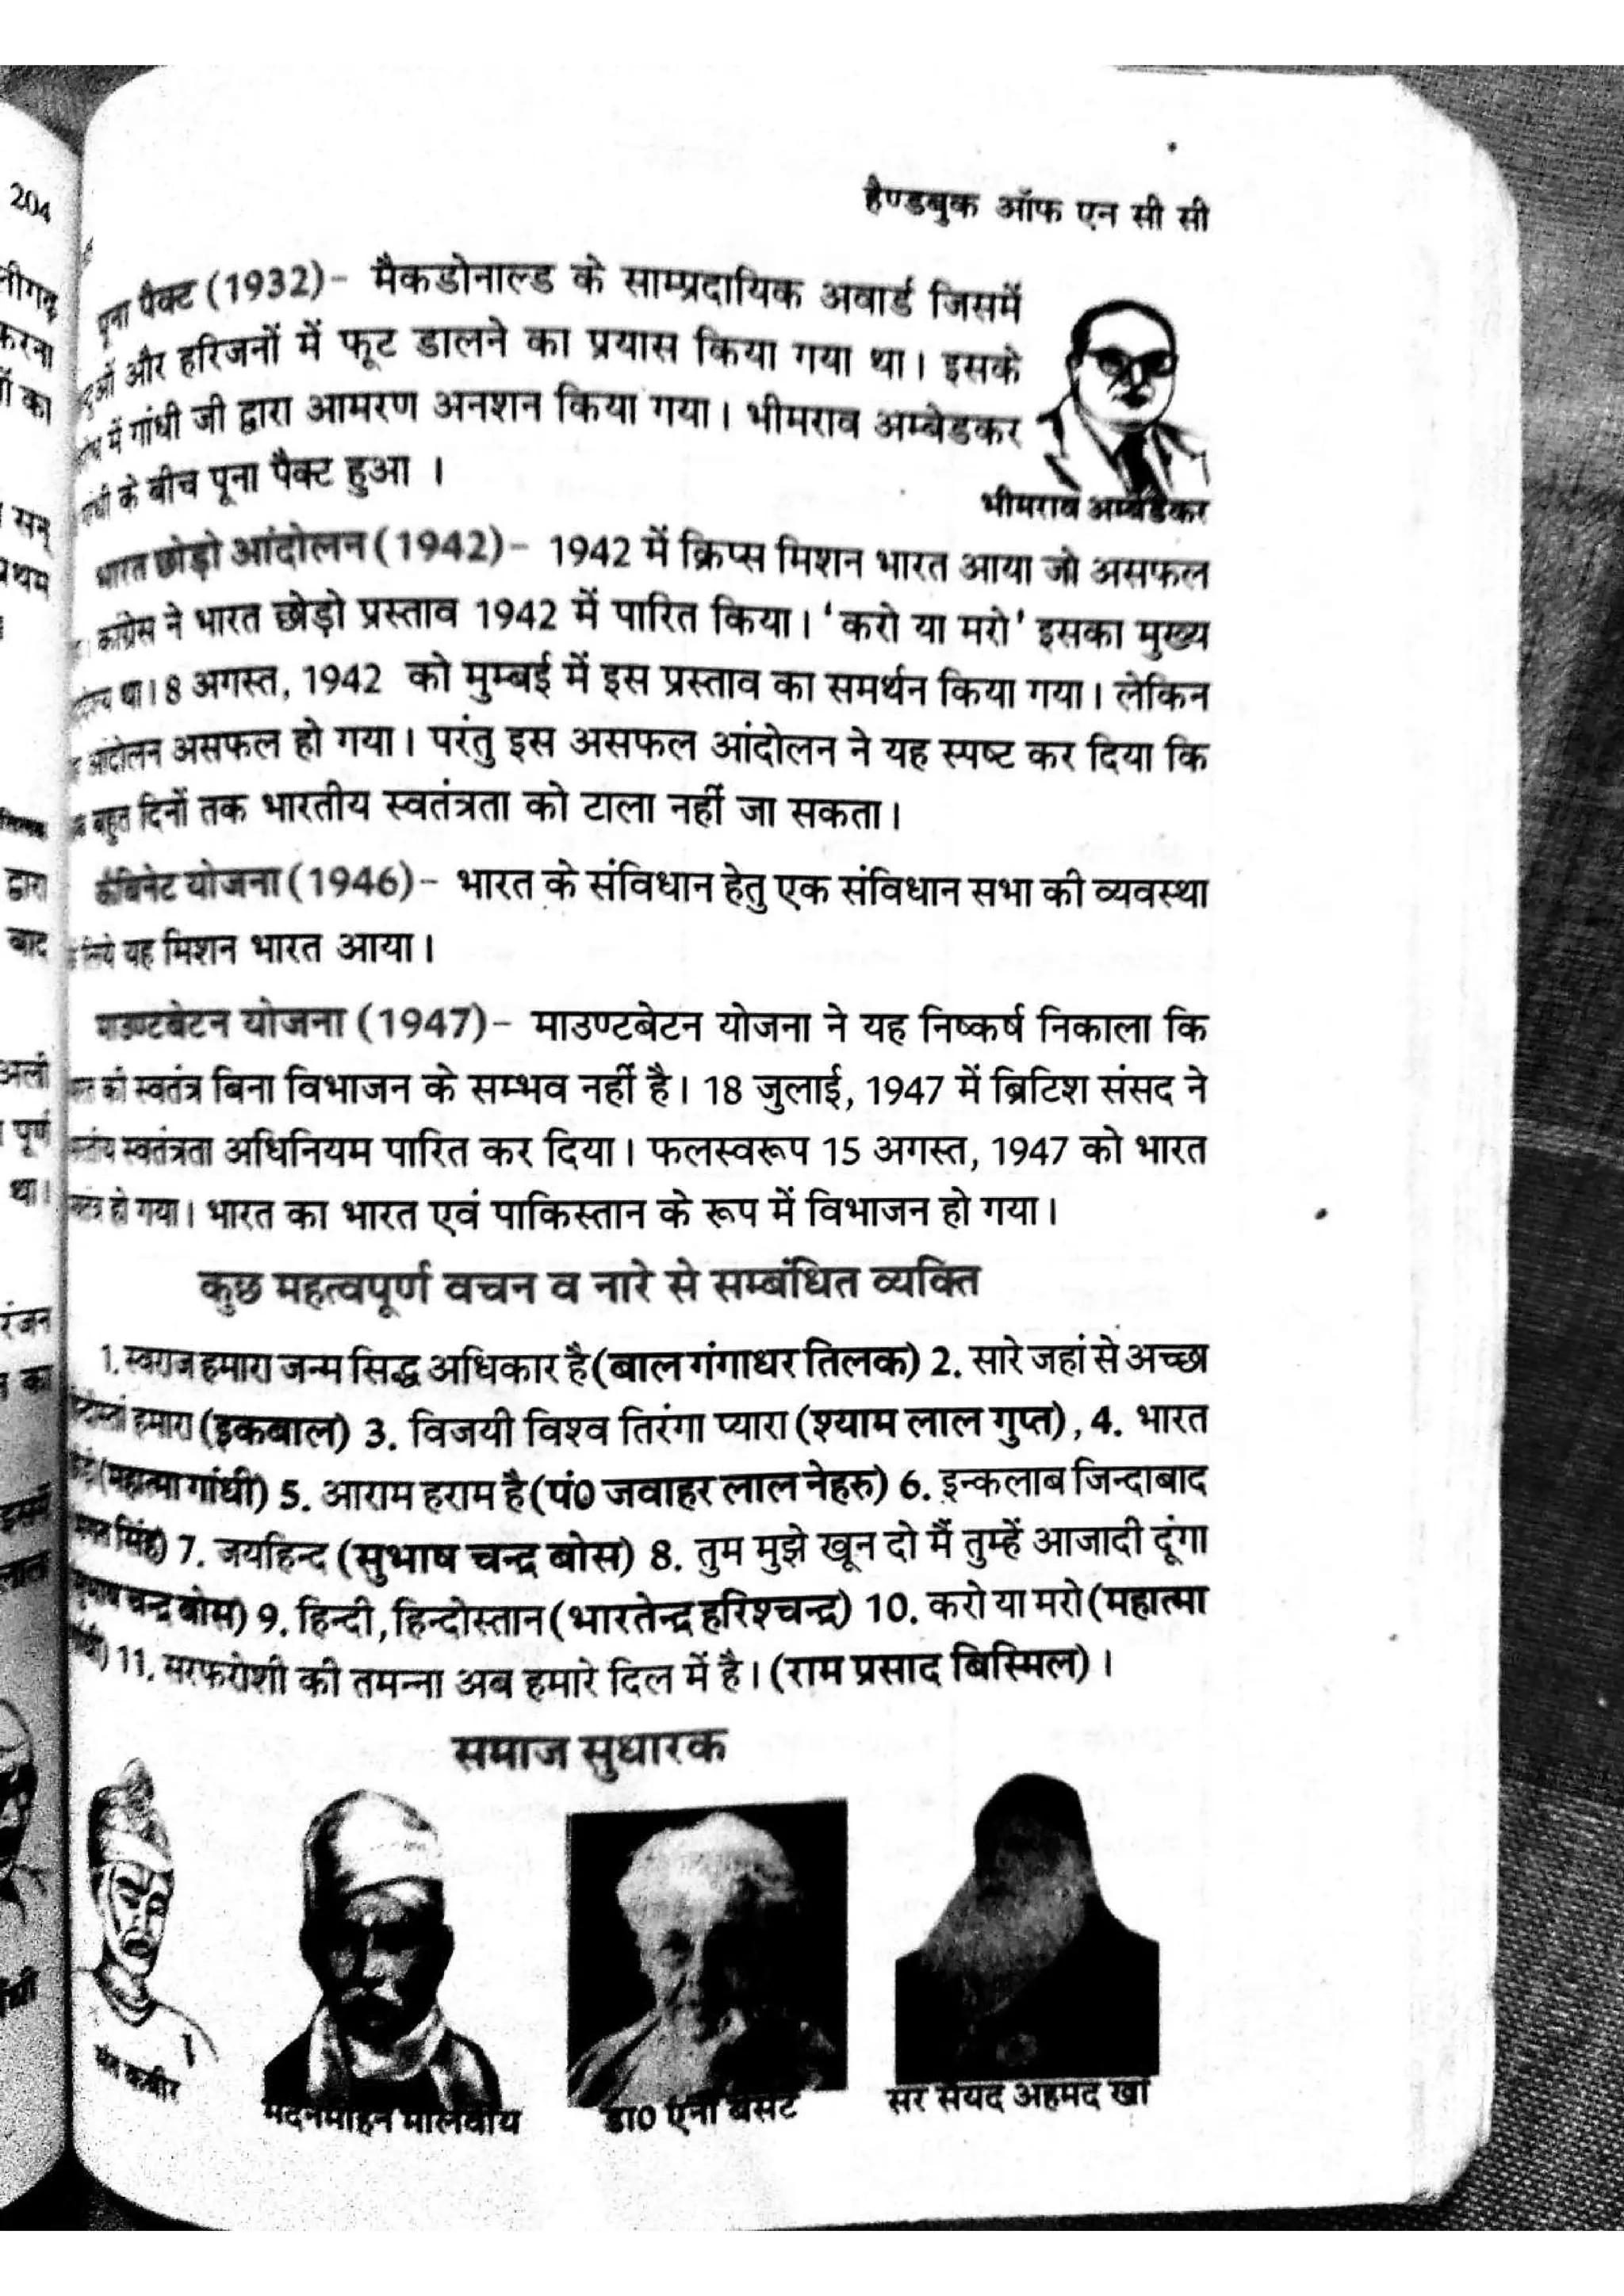 204
हैण्डबुक ऑफ एन सी सी
पूना पैक्ट (1932)- मैकडोनाल्ड के साम्प्रदायिक अवार्ड जिसमें
और हरिजनों में फूट डालने का प्रयास किया गया था। इसके
में गांधी जी द्वारा आमरण अनशन किया गया। भीमराव अम्बेडकर
के बीच पूना पैक्ट हुआ ।
भीमराव अम्बेडकर
भारत छोड़ो आंदोलन (1942)- 1942 में क्रिप्स मिशन भारत आया जो असफल
कांग्रेस ने भारत छोड़ो प्रस्ताव 1942 में पारित किया। 'करो या मरो' इसका मुख्य
था। 8 अगस्त, 1942 को मुम्बई में इस प्रस्ताव का समर्थन किया गया। लेकिन
आंदोलन असफल हो गया। परंतु इस असफल आंदोलन ने यह स्पष्ट कर दिया कि
बहुत दिनों तक भारतीय स्वतंत्रता को टाला नहीं जा सकता।
कैबिनेट योजना (1946)- भारत के संविधान हेतु एक संविधान सभा की व्यवस्था
लिये यह मिशन भारत आया।
माउण्टबेटन योजना (1947)- माउण्टबेटन योजना ने यह निष्कर्ष निकाला कि
को स्वतंत्र बिना विभाजन के सम्भव नहीं है। 18 जुलाई, 1947 में ब्रिटिश संसद ने
स्वतंत्रता अधिनियम पारित कर दिया। फलस्वरूप 15 अगस्त, 1947 को भारत
हो गया। भारत का भारत एवं पाकिस्तान के रूप में विभाजन हो गया।
कुछ महत्वपूर्ण वचन व नारे से सम्बंधित व्यक्ति
1. स्वराज हमारा जन्म सिद्ध अधिकार है (बाल गंगाधर तिलक) 2. सारे जहां से अच्छा
हमारा (इकबाल) 3. विजयी विश्व तिरंगा प्यारा (श्याम लाल गुप्त), 4. भारत
(महात्मा गांधी) 5. आराम हराम है (पं0 जवाहर लाल नेहरु) 6. इन्कलाब जिन्दाबाद
सिंह) 7. जयहिन्द (सुभाष चन्द्र बोस) 8. तुम मुझे खून दो मैं तुम्हें आजादी दूंगा
चन्द्र बोस) 9. हिन्दी, हिन्दोस्तान (भारतेन्द्र हरिश्चन्द्र) 10. करो या मरो (महात्मा
11. सरफरोशी की तमन्ना अब हमारे दिल में है। (राम प्रसाद बिस्मिल) ।
समाज सुधारक
कबीर
मदनमोहन मालवीय
डा0 एनी बेसेंट
सर सैयद अहमद खां